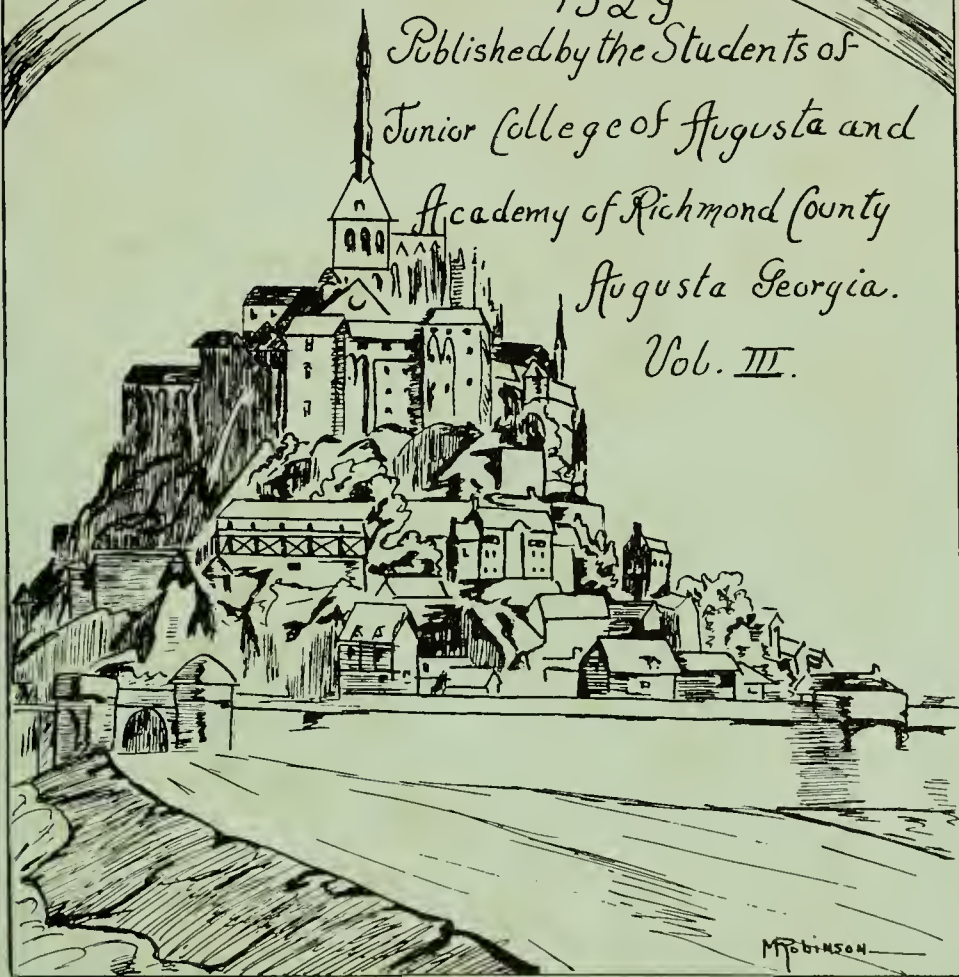 1929
Published by the Students of
Junior College of Augusta and
Academy of Richmond County
Augusta Georgia.
Vol. III.
MRobinson